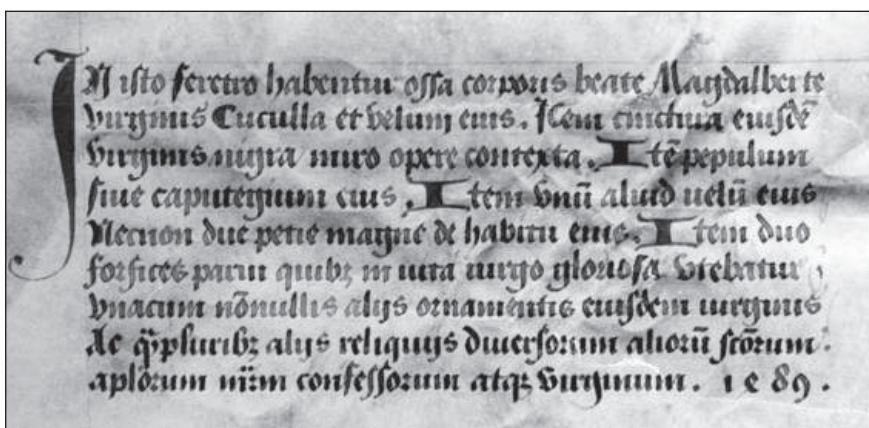 IN isto feretro habentur ossa corporis beate Magdalberte
virginis Cuculla et velum eius. Item cinctura eiusdē
virginis nigra miro opere contexta. Itē pepulum
siue caputegium eius. Item vnū aliud uelū eius
Necnon due petie magne de habitu eius. Item duo
forfices parui quibꝫ in uita uirgo gloriosa vtebatur
vnacum nōnullis alijs ornamentis eiusdem uirginis
Ac qꝫpluribꝫ alijs reliquijs diuersorum aliorū scōrum
aplorum mr̄m confessorum atqꝫ virginum. 1589.